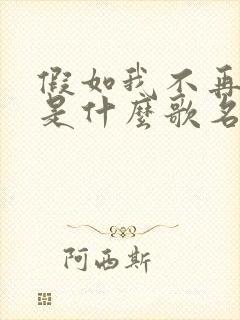 假如我不再
是什麼歌名
阿西斯